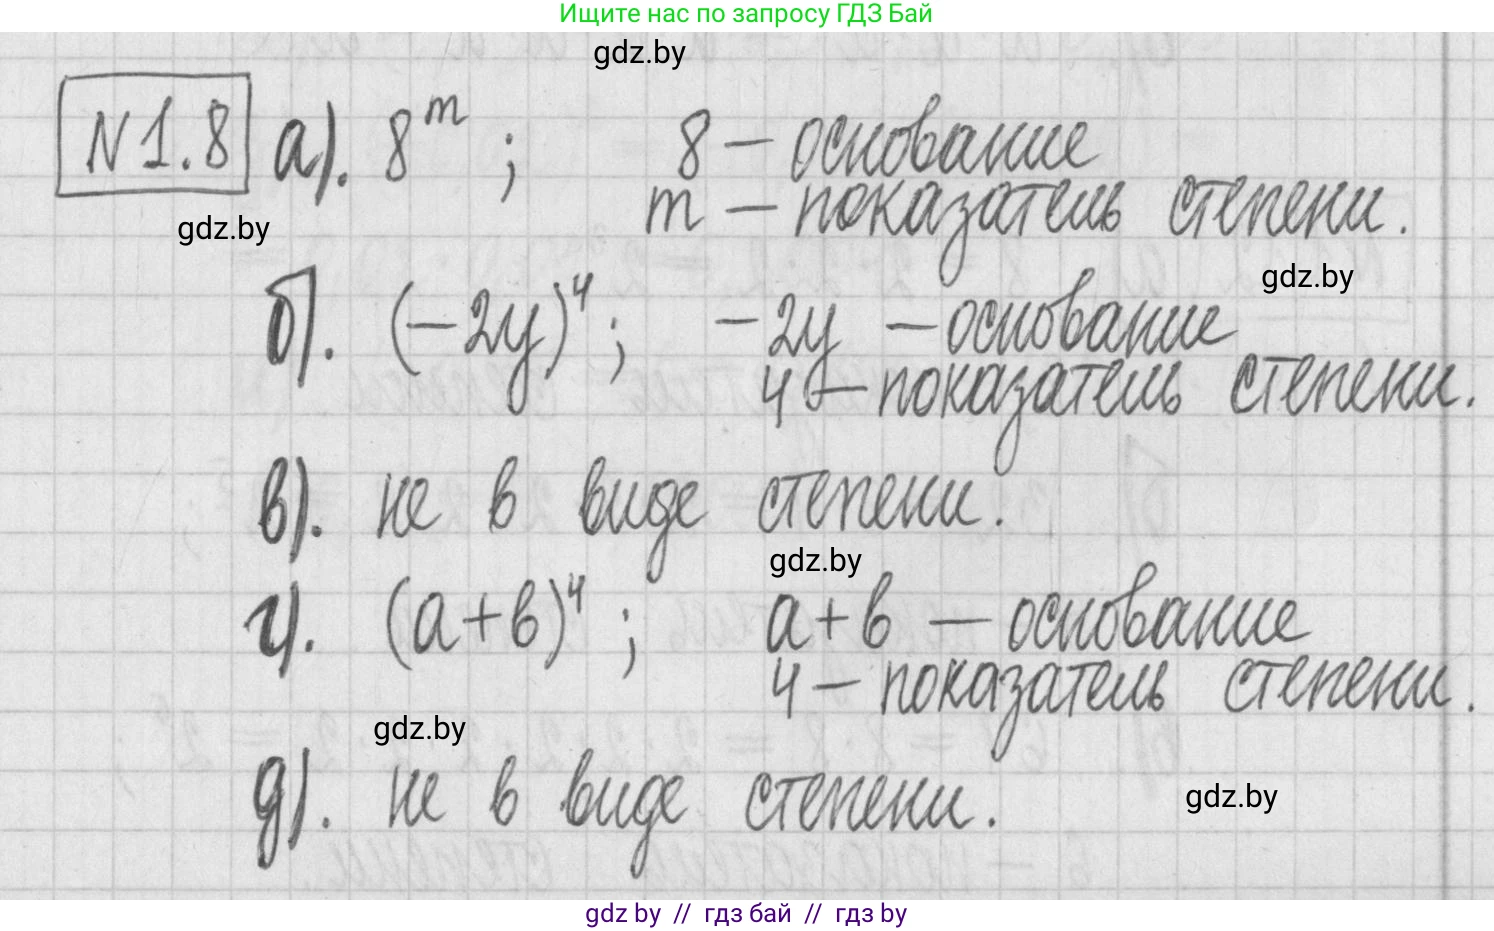 Ищите нас по запросу ГДЗ Бай
gdz.by
N1.8 а). 8^m ; 8 – основание
m – показатель степени.
gdz.by
gdz.by
б). (-2y)^4 ; -2y – основание
4 – показатель степени.
в). не в виде степени.
gdz.by
г). (a+b)^4 ; a+b – основание
4 – показатель степени.
gdz.by
д). не в виде степени.
gdz.by
gdz by // гдз бай // гдз by